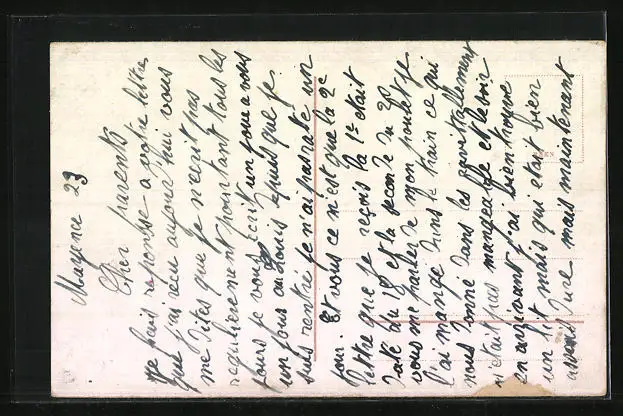 Mayence 23
Cher parents
Je fais reponse a votre lettre
que j'ai recu aujourd'hui vous
me dites que je n'ecrit pas
regulierement pourtant tous les
jours je vous ecrit un jour a vous
un jour a Louis depuis que je
suis rentre je n'ai pas rate un
jour. Et vous ce n'est que la 2e
lettre que je reçois la 1e etait
date du 18 et la seconde du 20
vous me parler de mon poulet je
l'ai mange dans le train ce qui
nous donne dans les
n'etait pas mangeable et le soir
en arrivant j'ai bien trouve
un lit mais qui etait bien
dure mais maintenant